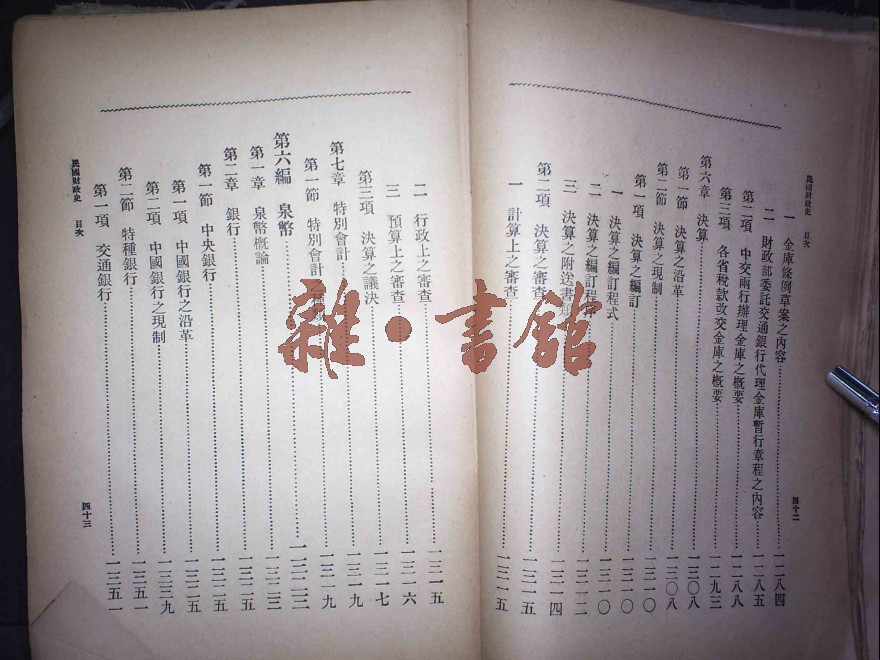 民國財政史 目次
一 金庫條例草案之內容……一二八四
二 財政部委託交通銀行代理金庫暫行章程之內容……一二八五
第二項 中交兩行辦理金庫之概要……一二八八
第三項 各省稅款改交金庫之概要……一二九三
第六章 決算……一三〇八
第一節 決算之沿革……一三〇八
第二節 決算之現制……一三一〇
第一項 決算之編訂……一三一〇
一 決算之編訂程式……一三一〇
二 決算之編訂程序……一三一二
三 決算之附送書類……一三一四
第二項 決算之審查……一三一五
一 計算上之審查……一三一五
四十二
二 行政上之審查……一三一五
三 預算上之審查……一三一六
第三項 決算之議決……一三一七
第七章 特別會計……一三一九
第一節 特別會計之種類……一三一九
第六編 泉幣……一三二三
第一章 泉幣概論……一三二三
第二章 銀行……一三二五
第一節 中央銀行……一三二五
第一項 中國銀行之沿革……一三二五
第二項 中國銀行之現制……一三三九
第二節 特種銀行……一三五一
第一項 交通銀行……一三五一
民國財政史 目次
四十三
雜·書館